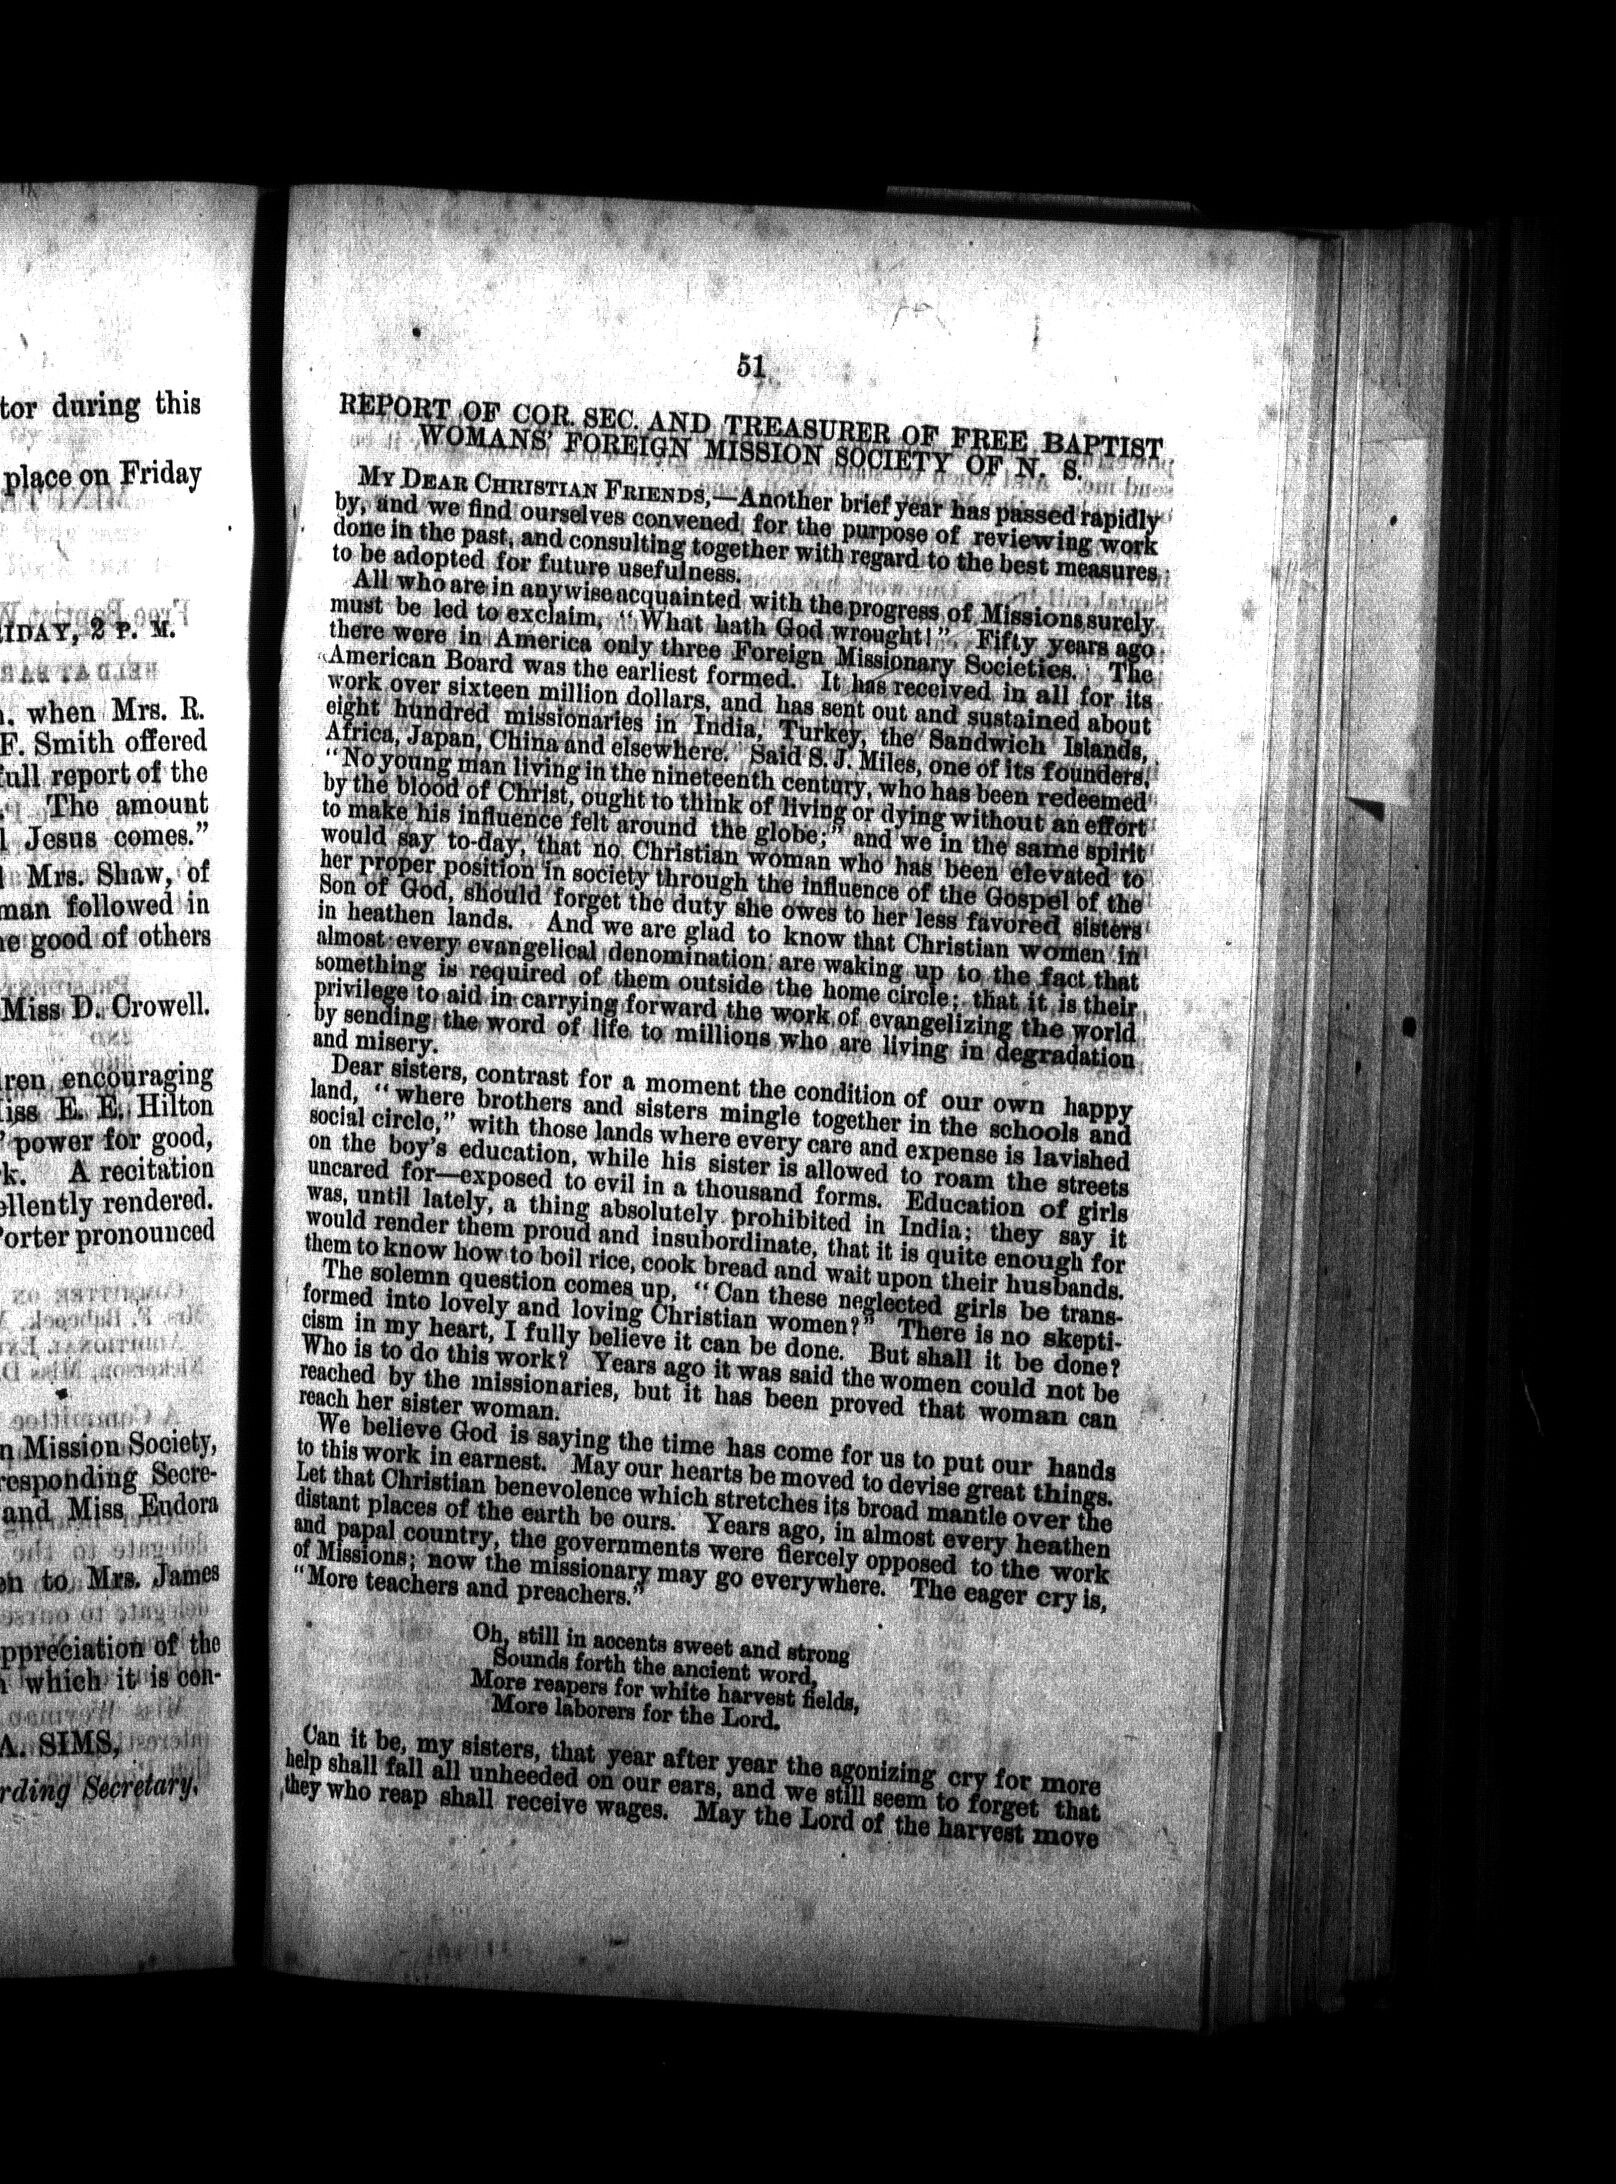 tor during this
place on Friday
IDAY, 2 P. M.
when Mrs. R.
F. Smith offered
full report of the
The amount
Jesus comes.”
Mrs. Shaw, of
man followed in
good of others
Miss D. Crowell.
ren encouraging
iss E. E. Hilton
power for good,
k. A recitation
ellently rendered.
orter pronounced
Mission Society,
responding Secre-
and Miss Eudora
en to Mrs. James
ppreciation of the
which it is con-
A. SIMS,
rding Secretary.
51
REPORT OF COR. SEC. AND TREASURER OF FREE BAPTIST
WOMANS’ FOREIGN MISSION SOCIETY OF N. S.
MY DEAR CHRISTIAN FRIENDS,—Another brief year has passed rapidly
by, and we find ourselves convened for the purpose of reviewing work
done in the past, and consulting together with regard to the best measures
to be adopted for future usefulness.
All who are in anywise acquainted with the progress of Missions surely
must be led to exclaim, “What hath God wrought!” Fifty years ago
there were in America only three Foreign Missionary Societies. The
American Board was the earliest formed. It has received in all for its
work over sixteen million dollars, and has sent out and sustained about
eight hundred missionaries in India, Turkey, the Sandwich Islands,
Africa, Japan, China and elsewhere. Said S. J. Miles, one of its founders,
“No young man living in the nineteenth century, who has been redeemed
by the blood of Christ, ought to think of living or dying without an effort
to make his influence felt around the globe;” and we in the same spirit
would say to-day, that no Christian woman who has been elevated to
her proper position in society through the influence of the Gospel of the
Son of God, should forget the duty she owes to her less favored sisters
in heathen lands. And we are glad to know that Christian women in
almost every evangelical denomination are waking up to the fact that
something is required of them outside the home circle; that it is their
privilege to aid in carrying forward the work of evangelizing the world
by sending the word of life to millions who are living in degradation
and misery.
Dear sisters, contrast for a moment the condition of our own happy
land, “where brothers and sisters mingle together in the schools and
social circle,” with those lands where every care and expense is lavished
on the boy’s education, while his sister is allowed to roam the streets
uncared for—exposed to evil in a thousand forms. Education of girls
was, until lately, a thing absolutely prohibited in India; they say it
would render them proud and insubordinate, that it is quite enough for
them to know how to boil rice, cook bread and wait upon their husbands.
The solemn question comes up, “Can these neglected girls be trans-
formed into lovely and loving Christian women?” There is no skepti-
cism in my heart, I fully believe it can be done. But shall it be done?
Who is to do this work? Years ago it was said the women could not be
reached by the missionaries, but it has been proved that woman can
reach her sister woman.
We believe God is saying the time has come for us to put our hands
to this work in earnest. May our hearts be moved to devise great things.
Let that Christian benevolence which stretches its broad mantle over the
distant places of the earth be ours. Years ago, in almost every heathen
and papal country, the governments were fiercely opposed to the work
of Missions; now the missionary may go everywhere. The eager cry is,
“More teachers and preachers.”
Oh, still in accents sweet and strong
Sounds forth the ancient word,
More reapers for white harvest fields,
More laborers for the Lord.
Can it be, my sisters, that year after year the agonizing cry for more
help shall fall all unheeded on our ears, and we still seem to forget that
they who reap shall receive wages. May the Lord of the harvest move